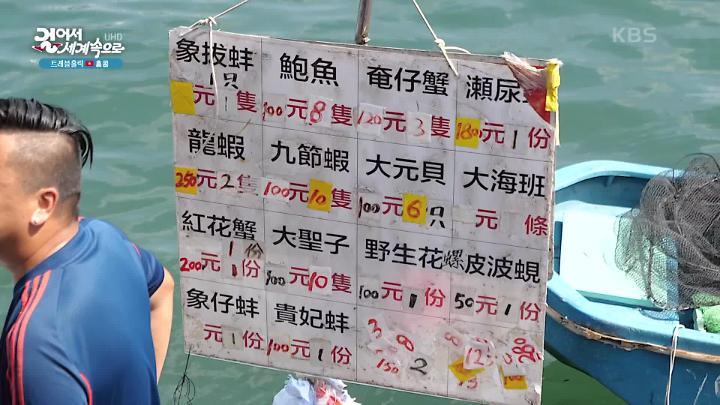 걸어서
세계속으로
UHD
트래블홀릭 홍콩
KBS
象拔蚌 鮑魚 奄仔蟹 瀨尿
1只
元1隻 100元8隻 120元3隻 180元1份
龍蝦 九節蝦 大元貝 大海班
250元2隻 100元10隻 100元6只 元 條
紅花蟹 大聖子 野生花螺 皮波蜆
1份
200元1份 100元10隻 100元1份 50元1份
象仔蚌 貴妃蚌
元1份 100元1份
3 8
150 2